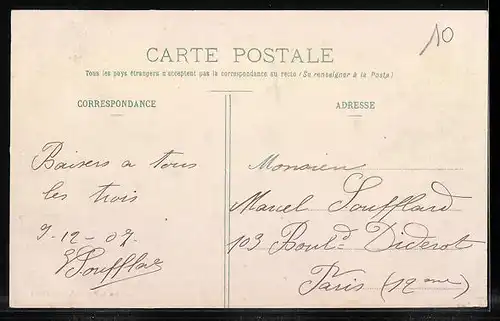 10
CARTE POSTALE
Tous les pays étrangers n'acceptent pas la correspondance au recto (Se renseigner à la Poste)
CORRESPONDANCE
ADRESSE
Baisers a tous
les trois
9-12-07
Soufflard
Monsieur
Marcel Soufflard
103 Boul.d Diderot
Paris (12 eme)